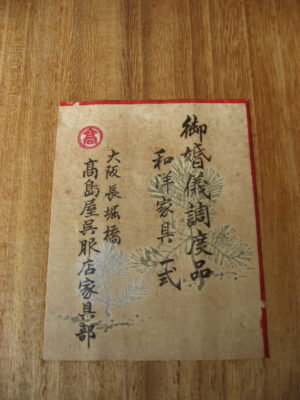 御婚儀調度品
和洋家具一式
髙
大阪長堀橋
髙島屋呉服店家具部